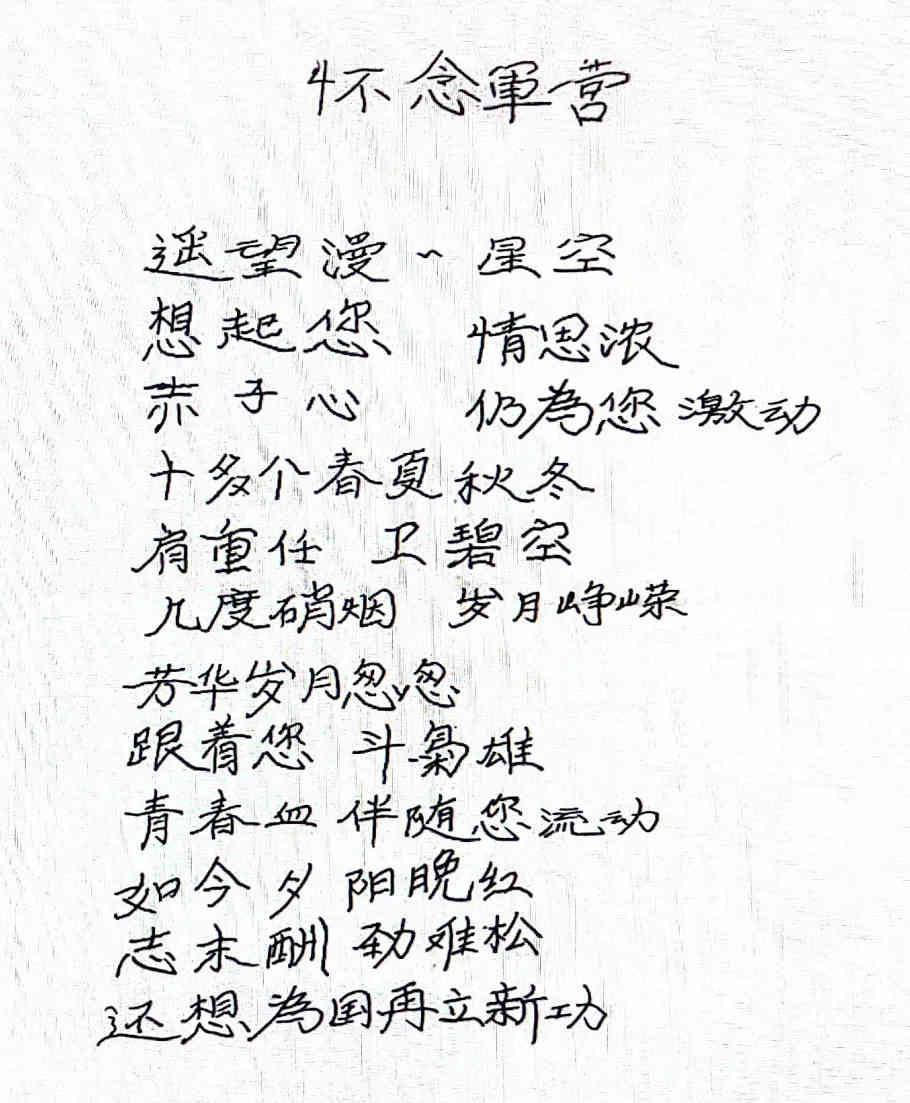 怀念軍营
遥望漫~星空
想起您 情思浓
赤子心 仍為您激动
十多个春夏秋冬
肩重任 卫碧空
几度硝烟 岁月峥嵘
芳华岁月怱怱
跟着您 斗枭雄
青春血伴随您流动
如今夕阳晚红
志未酬 劲难松
还想為国再立新功